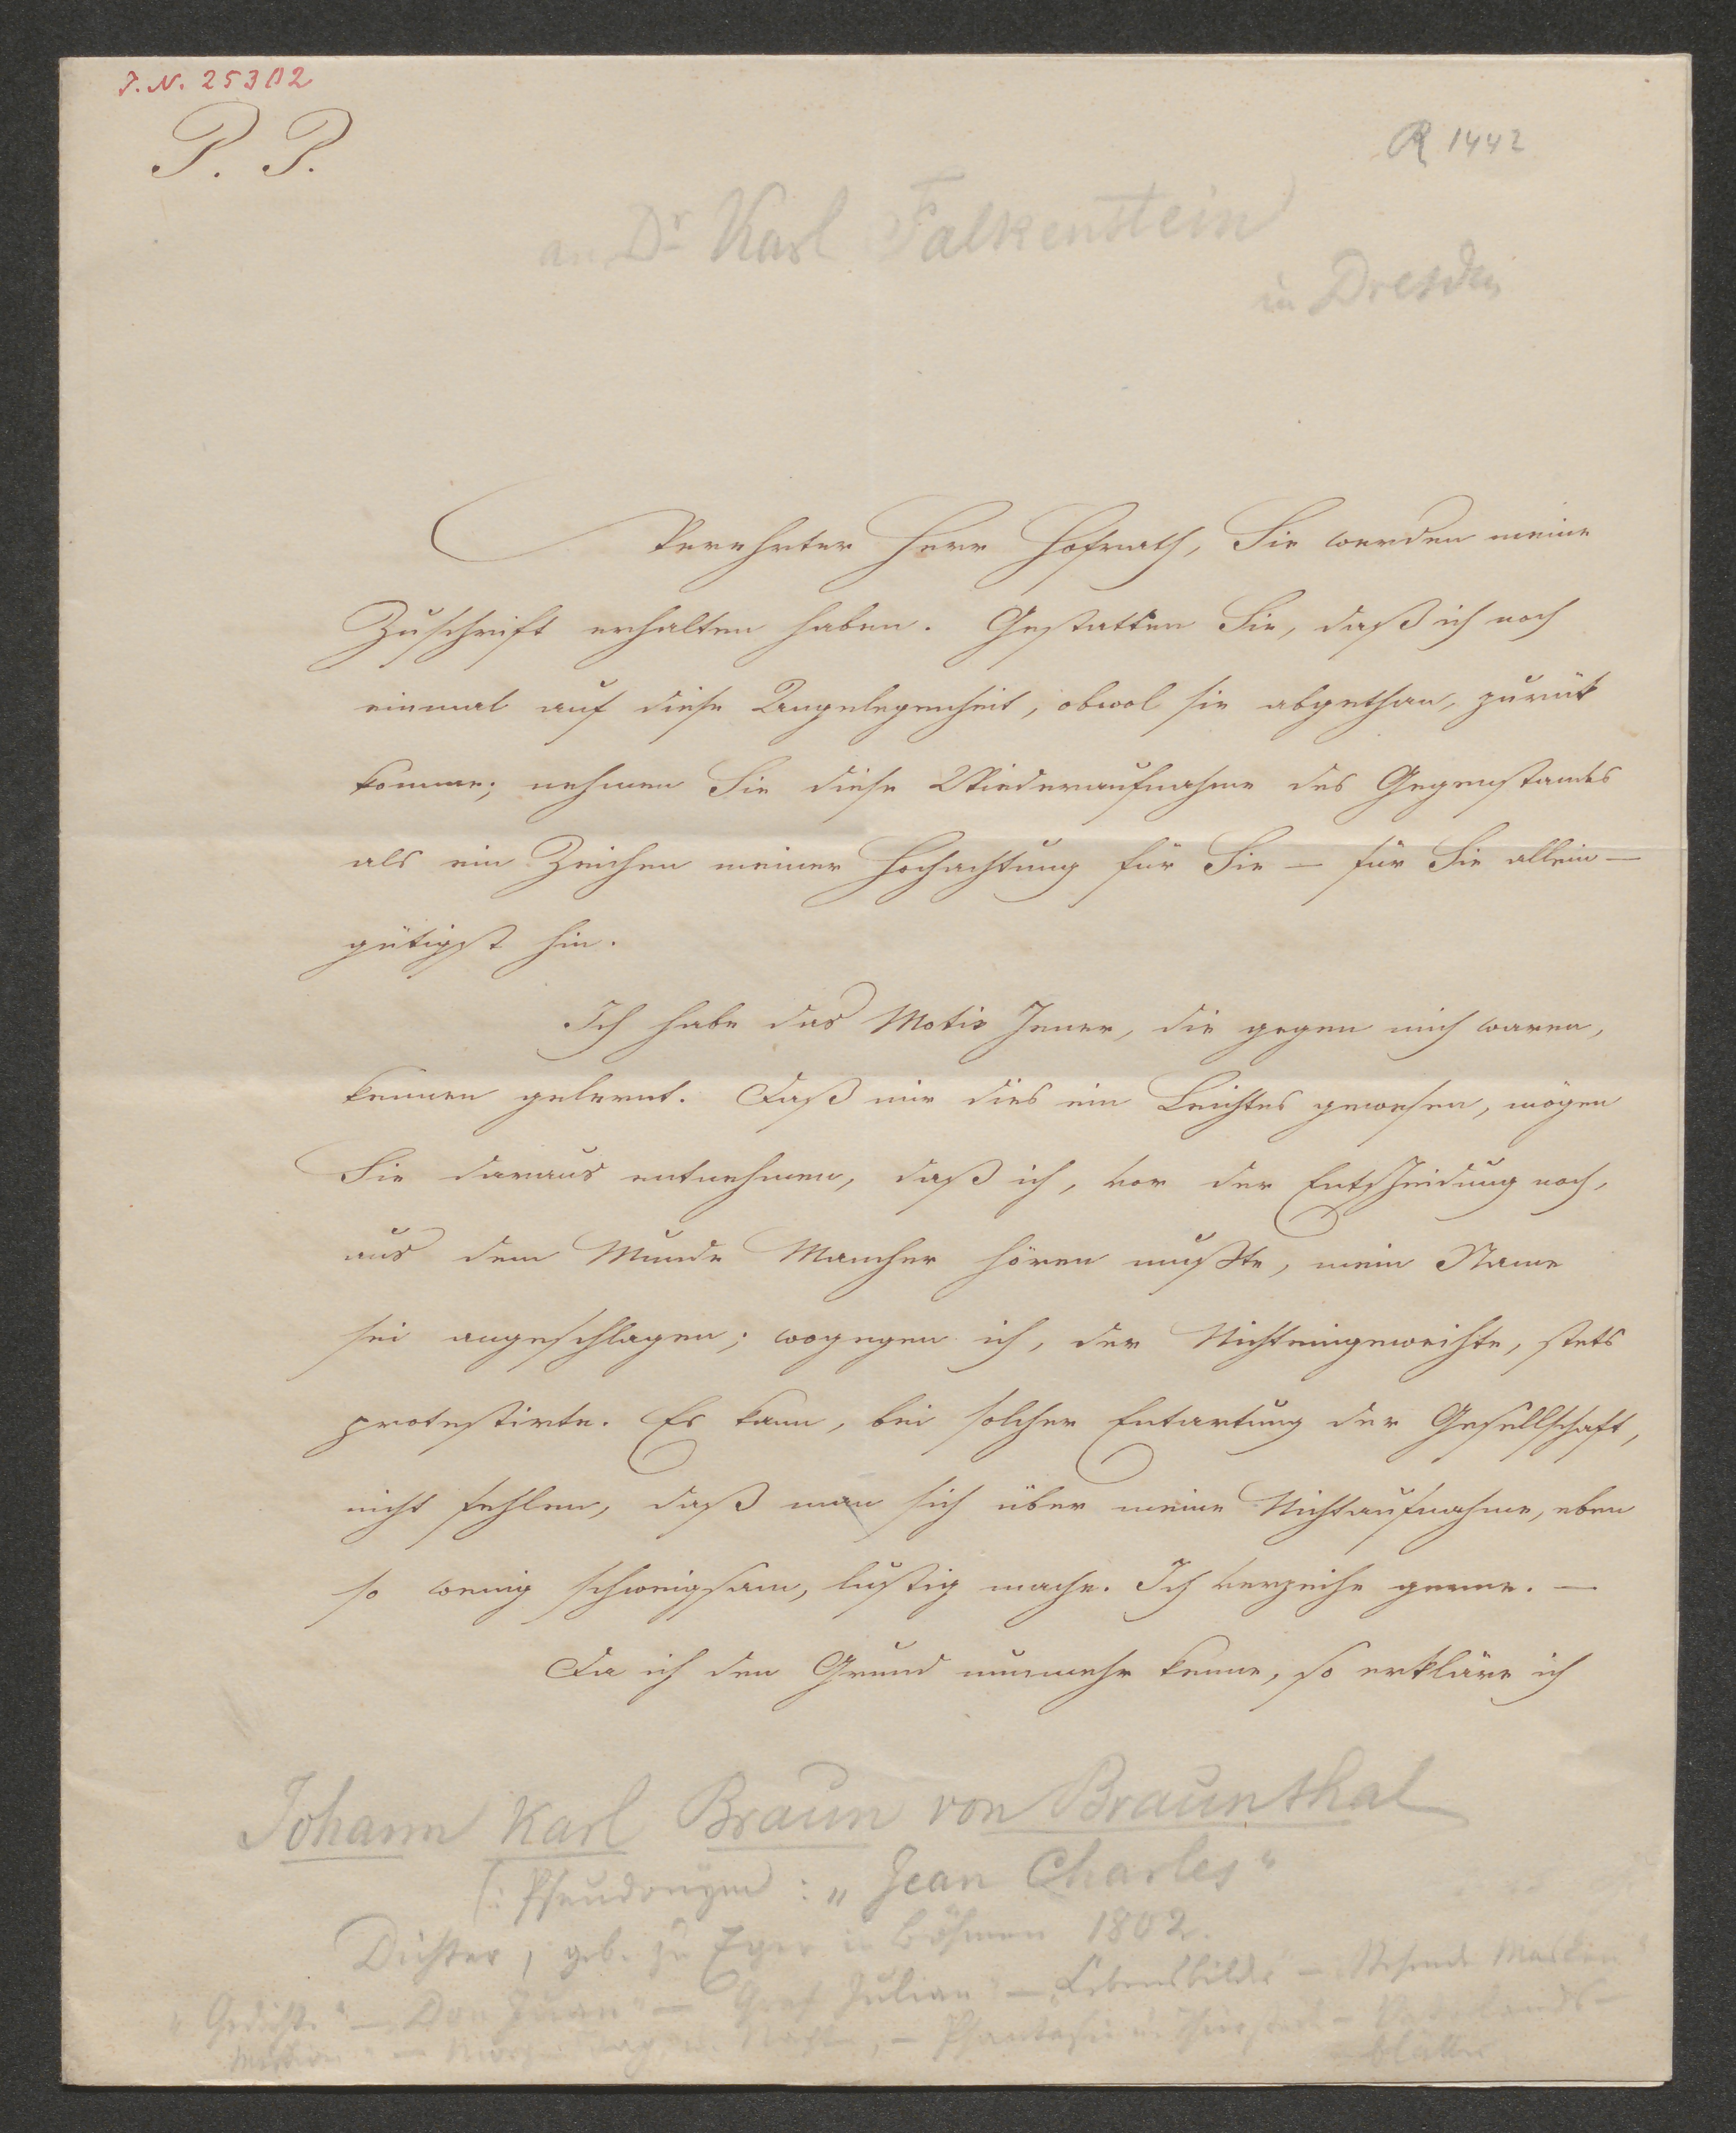 I.N. 25302
P. P.
R 1442
an Dr Karl Falkenstein
in Dresden
Verehrter Herr Hofrath, Sie werden meine
Zuschrift erhalten haben. Gestatten Sie, daß ich noch
einmal auf diese Angelegenheit, obwol sie abgethan, zurük
komme; nehmen Sie diese Wiederaufnahme des Gegenstandes
als ein Zeichen meiner Hochachtung für Sie – für Sie allein –
gütigst hin.
Ich habe das Motiv Jener, die gegen mich waren,
kennen gelernt. Daß mir dies ein Leichtes gewesen, mögen
Sie daraus entnehmen, daß ich, vor der Entscheidung noch,
aus dem Munde Mancher hören mußte, mein Name
sei angeschlagen; wogegen ich, der Nichteingeweihte, stets
protestirte. Es kann, bei solcher Entartung der Gesellschaft,
nicht fehlen, daß man sich über meine Nichtaufnahme, eben
so wenig schweigsam, lustig mache. Ich verzeihe gerne. –
Da ich den Grund nunmehr kenne, so erkläre ich
Johann Karl Braun von Braunthal
(: Pseudonym: „Jean Charles"
Dichter, geb. zu Eger in Böhmen 1802.
„Gedichte" – Don Juan" – Graf Julian" – Lebensbilder" – Masken"
Nacht, – Phantasie – Vaterlands-
blätter